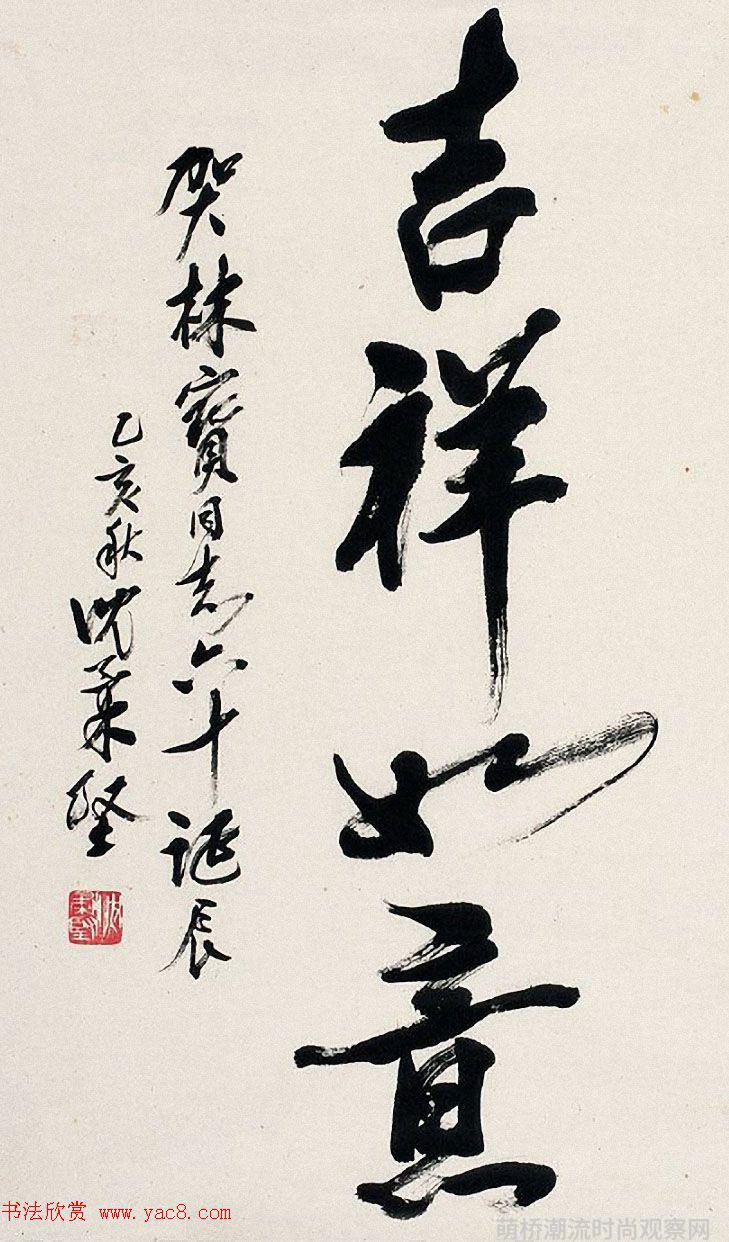 吉祥如意
贺林寶同志六十诞辰
乙亥秋沈秉坚
书法欣赏 www.yac8.com
萌桥潮流时尚观察网